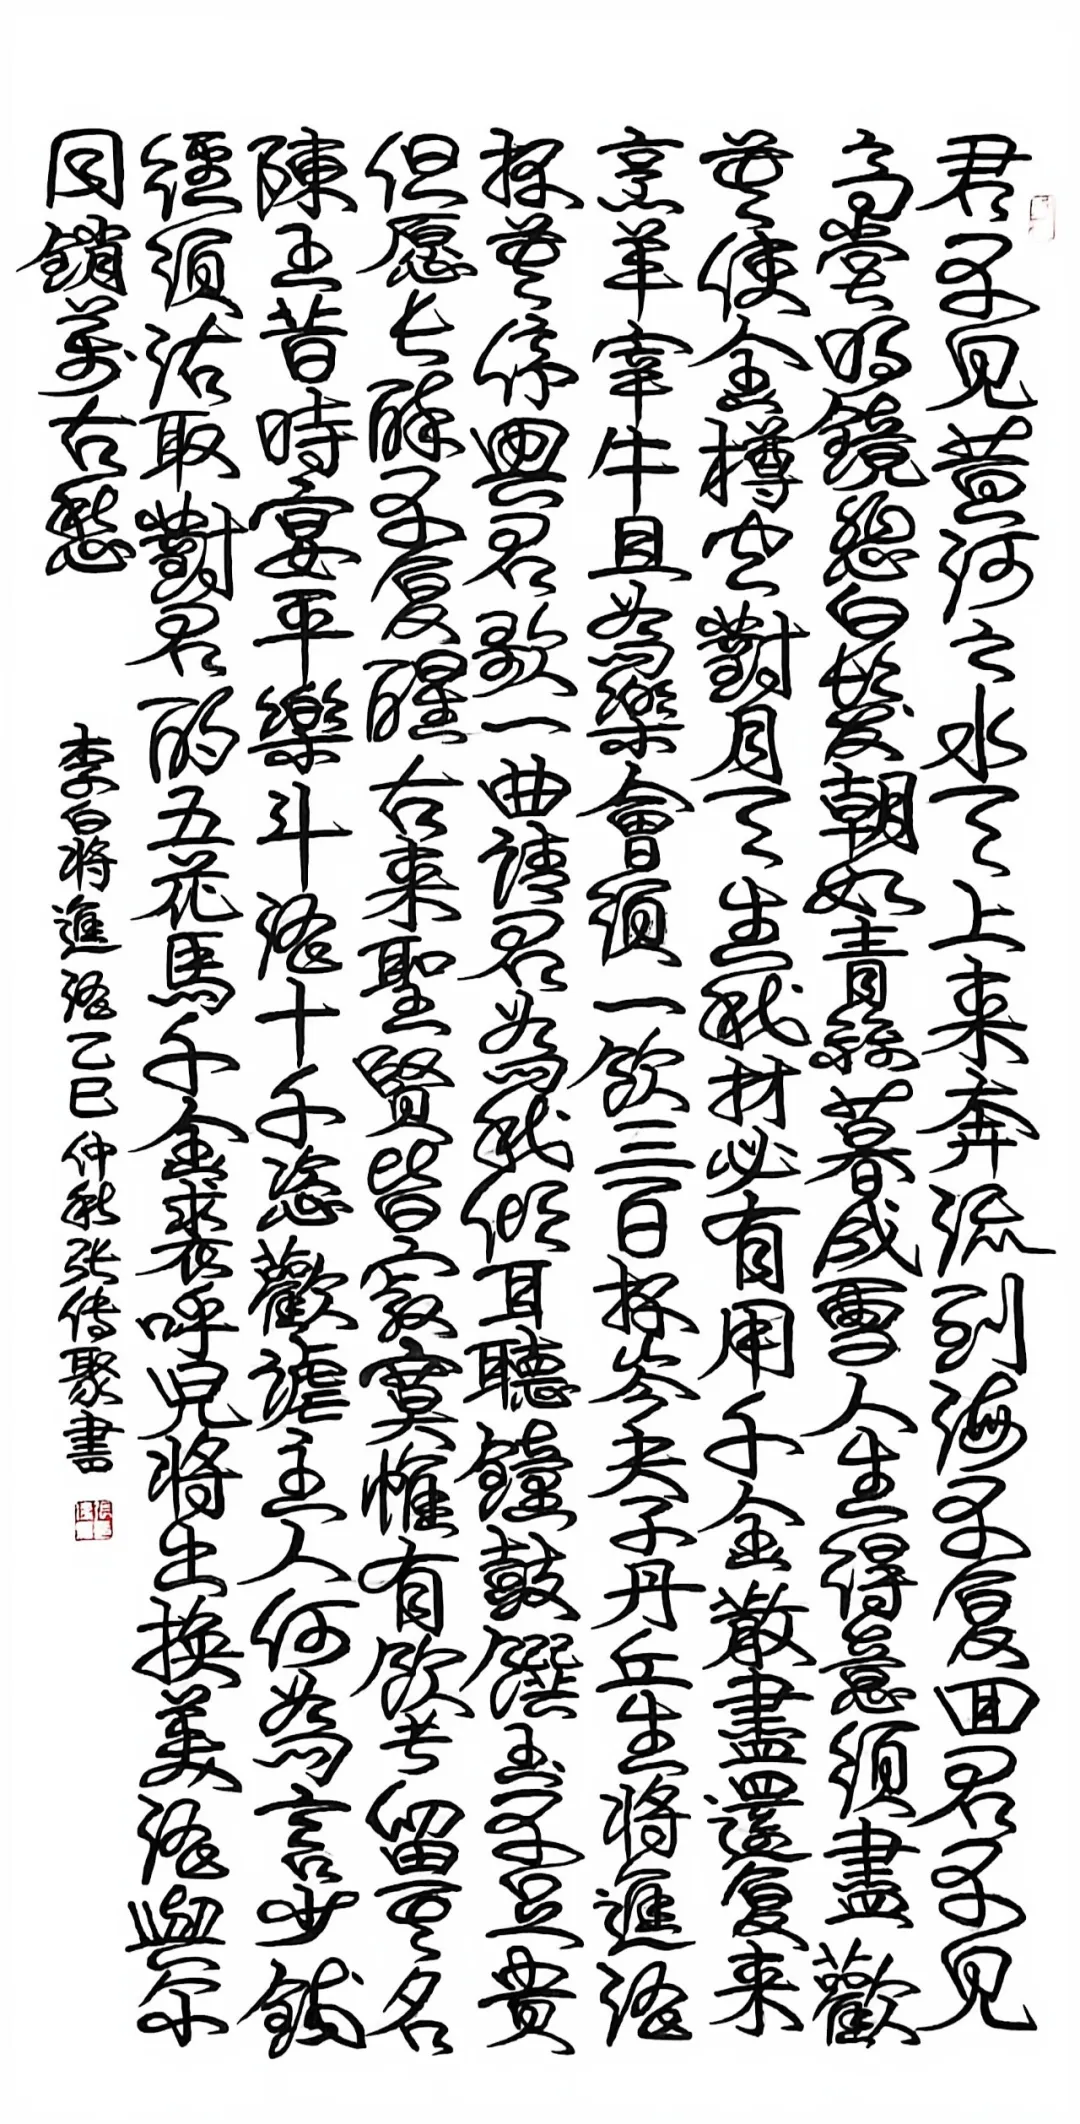 君不见黄河之水天上来奔流到海不复回君不见
高堂明镜悲白髮朝如青絲暮成雪人生得意须盡歡
莫使金樽空對月天生我材必有用千金散盡還复来
烹羊宰牛且為樂會須一飲三百杯岑夫子丹丘生將進酒
杯莫停與君歌一曲請君為我倾耳聽鐘鼓饌玉不足貴
但愿长醉不复醒古来聖賢皆寂寞惟有飲者留其名
陳王昔時宴平樂斗酒十千恣歡謔主人何為言少錢
徑須沽取對君酌五花馬千金裘呼兒將出換美酒與尔
同銷萬古愁
李白將進酒乙巳仲秋张传聚書